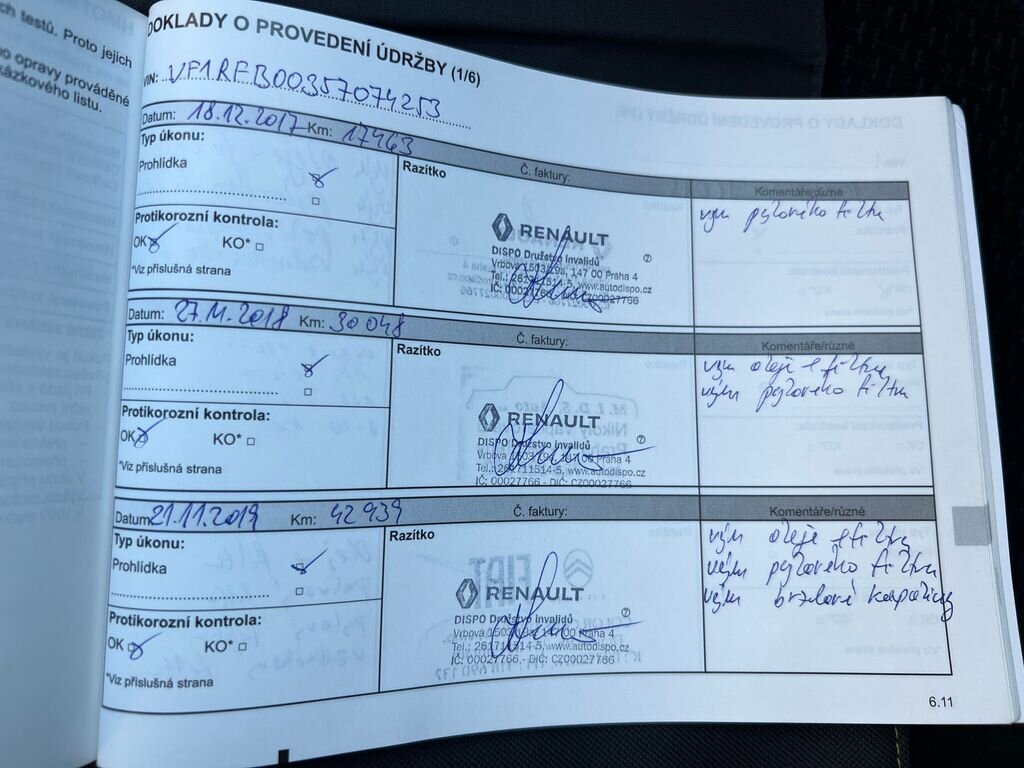 ch testů. Proto jejich
o opravy prováděné
kázkového listu.
DOKLADY O PROVEDENÍ ÚDRŽBY (1/6)
VIN: VF1RFB00357074253
Datum: 18.12.2017 Km: 17463
Typ úkonu:
Č. faktury:
Komentáře/různé
Prohlídka
Razítko
vým pylového filtru
Protikorozní kontrola:
OK KO*
*Viz příslušná strana
RENAULT
DISPO Družstvo Invalidů
Vrbova 1503/19a, 147 00 Praha 4
Tel.: 261711514-5, www.autodispo.cz
IČ: 00027766 - DIČ: CZ00027766
Datum: 27.11.2018 Km: 30048
Typ úkonu:
Č. faktury:
Komentáře/různé
Prohlídka
Razítko
vým oleje + filtru
vým pylového filtru
Protikorozní kontrola:
OK KO*
*Viz příslušná strana
RENAULT
DISPO Družstvo Invalidů
Vrbova 1503/19a, 147 00 Praha 4
Tel.: 261711514-5, www.autodispo.cz
IČ: 00027766 - DIČ: CZ00027766
Datum: 21.11.2019 Km: 42939
Typ úkonu:
Č. faktury:
Komentáře/různé
Prohlídka
Razítko
vým oleje + filtru
vým pylového filtru
vým brzdové kapaliny
Protikorozní kontrola:
OK KO*
*Viz příslušná strana
RENAULT
DISPO Družstvo Invalidů
Vrbova 1503/19a, 147 00 Praha 4
Tel.: 261711514-5, www.autodispo.cz
IČ: 00027766 - DIČ: CZ00027766
6.11